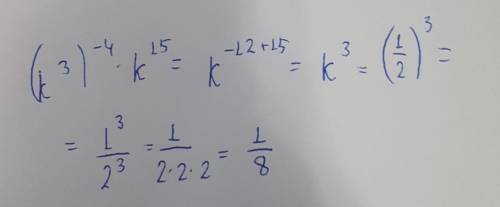 (k³)⁻⁴ · k¹⁵ = k⁻¹²⁺¹⁵ = k³ = (1/2)³ =
= 1³/2³ = 1/2·2·2 = 1/8